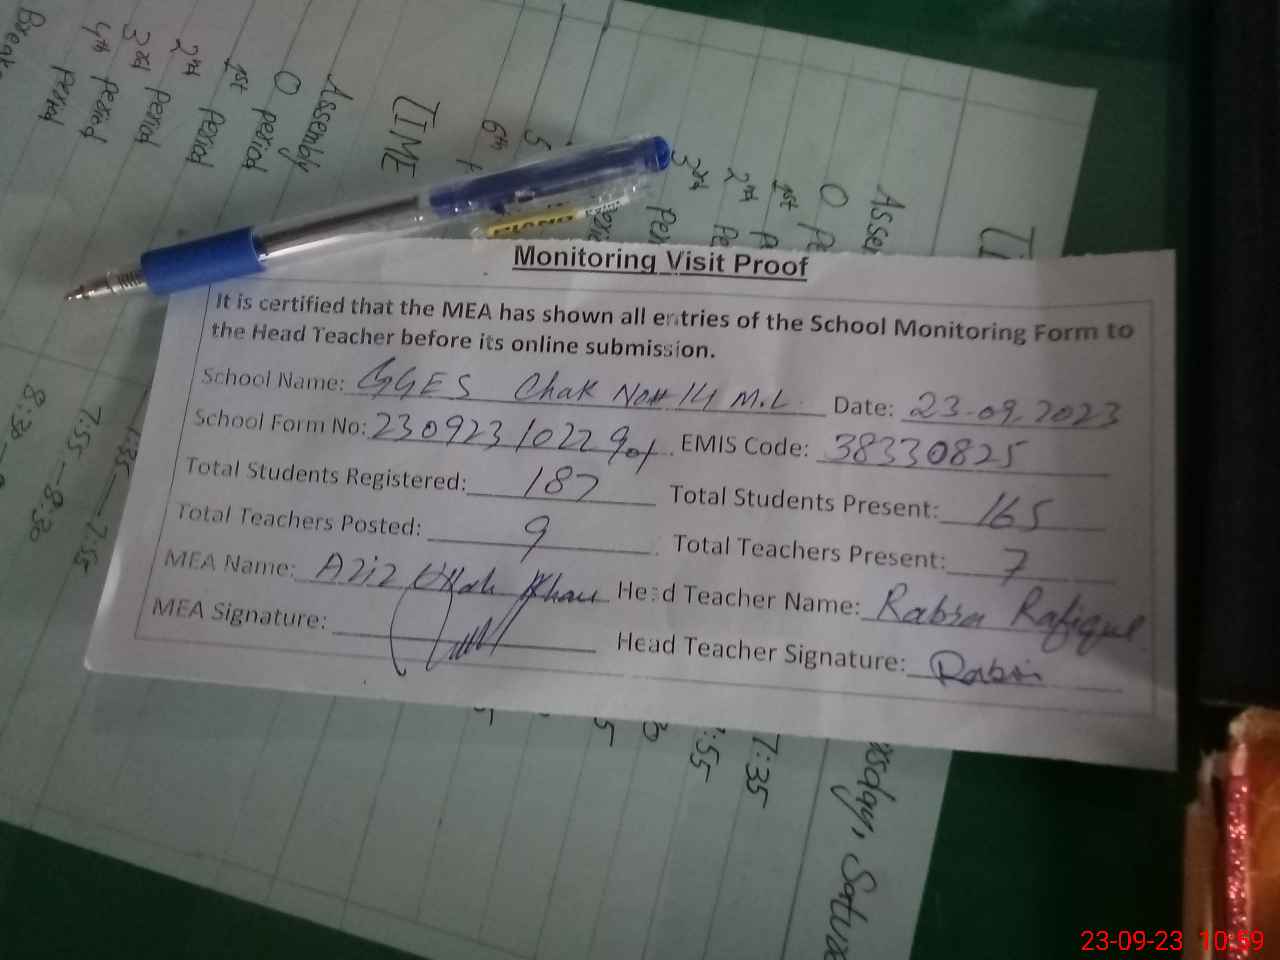 Monitoring Visit Proof
It is certified that the MEA has shown all entries of the School Monitoring Form to
the Head Teacher before its online submission.
School Name: GGES Chak No# 14 M.L Date: 23.09.2023
School Form No: 230923102290f EMIS Code: 38330825
Total Students Registered: 187 Total Students Present: 165
Total Teachers Posted: 9 Total Teachers Present: 7
MEA Name: Aziz Ullah Khan Head Teacher Name: Rabia Rafique
MEA Signature: Head Teacher Signature: Rabia
TIME
Assembly
0 period
1st period
2nd period
3rd period
4th period
Break
5
6th
7:55-8:30
8:30
Assem
0 Pe
1st P
2nd Pe
3rd Per
7:35
:55
PIANO
23-09-23 10:59